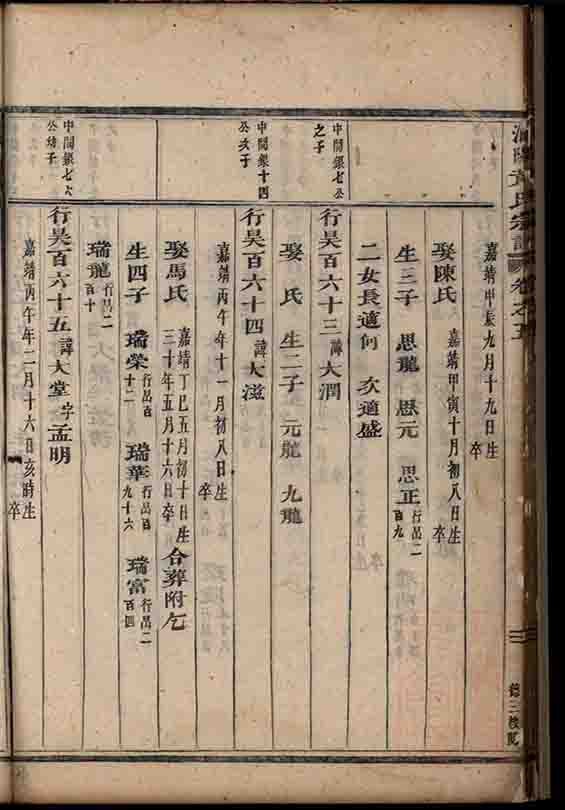 氏宗譜 卷之五
嘉靖甲辰九月十九日生 卒
娶陳氏 嘉靖甲寅十月初八日生 卒
生三子 思龍 思元 思正 行昺二百九
二女長適何 次適盛
中閒銀七公之子
行昊百六十三 諱大潤
生 卒
娶 氏 生二子 元龍 九龍
中閒銀十四公次子
行昊百六十四 諱大滋
嘉靖丙午年十一月初八日生 卒
娶馬氏 嘉靖丁巳五月初十日生 三十年五月十六日卒 合葬附乞
生四子 瑞榮 行昺百十二 瑞華 行昺百九十六 瑞富 行昺二百四
瑞龍 行昺二百十
中閒銀七六公幼子
行昊百六十五 諱大堂 字孟明
嘉靖丙午年二月十六日亥時生 卒